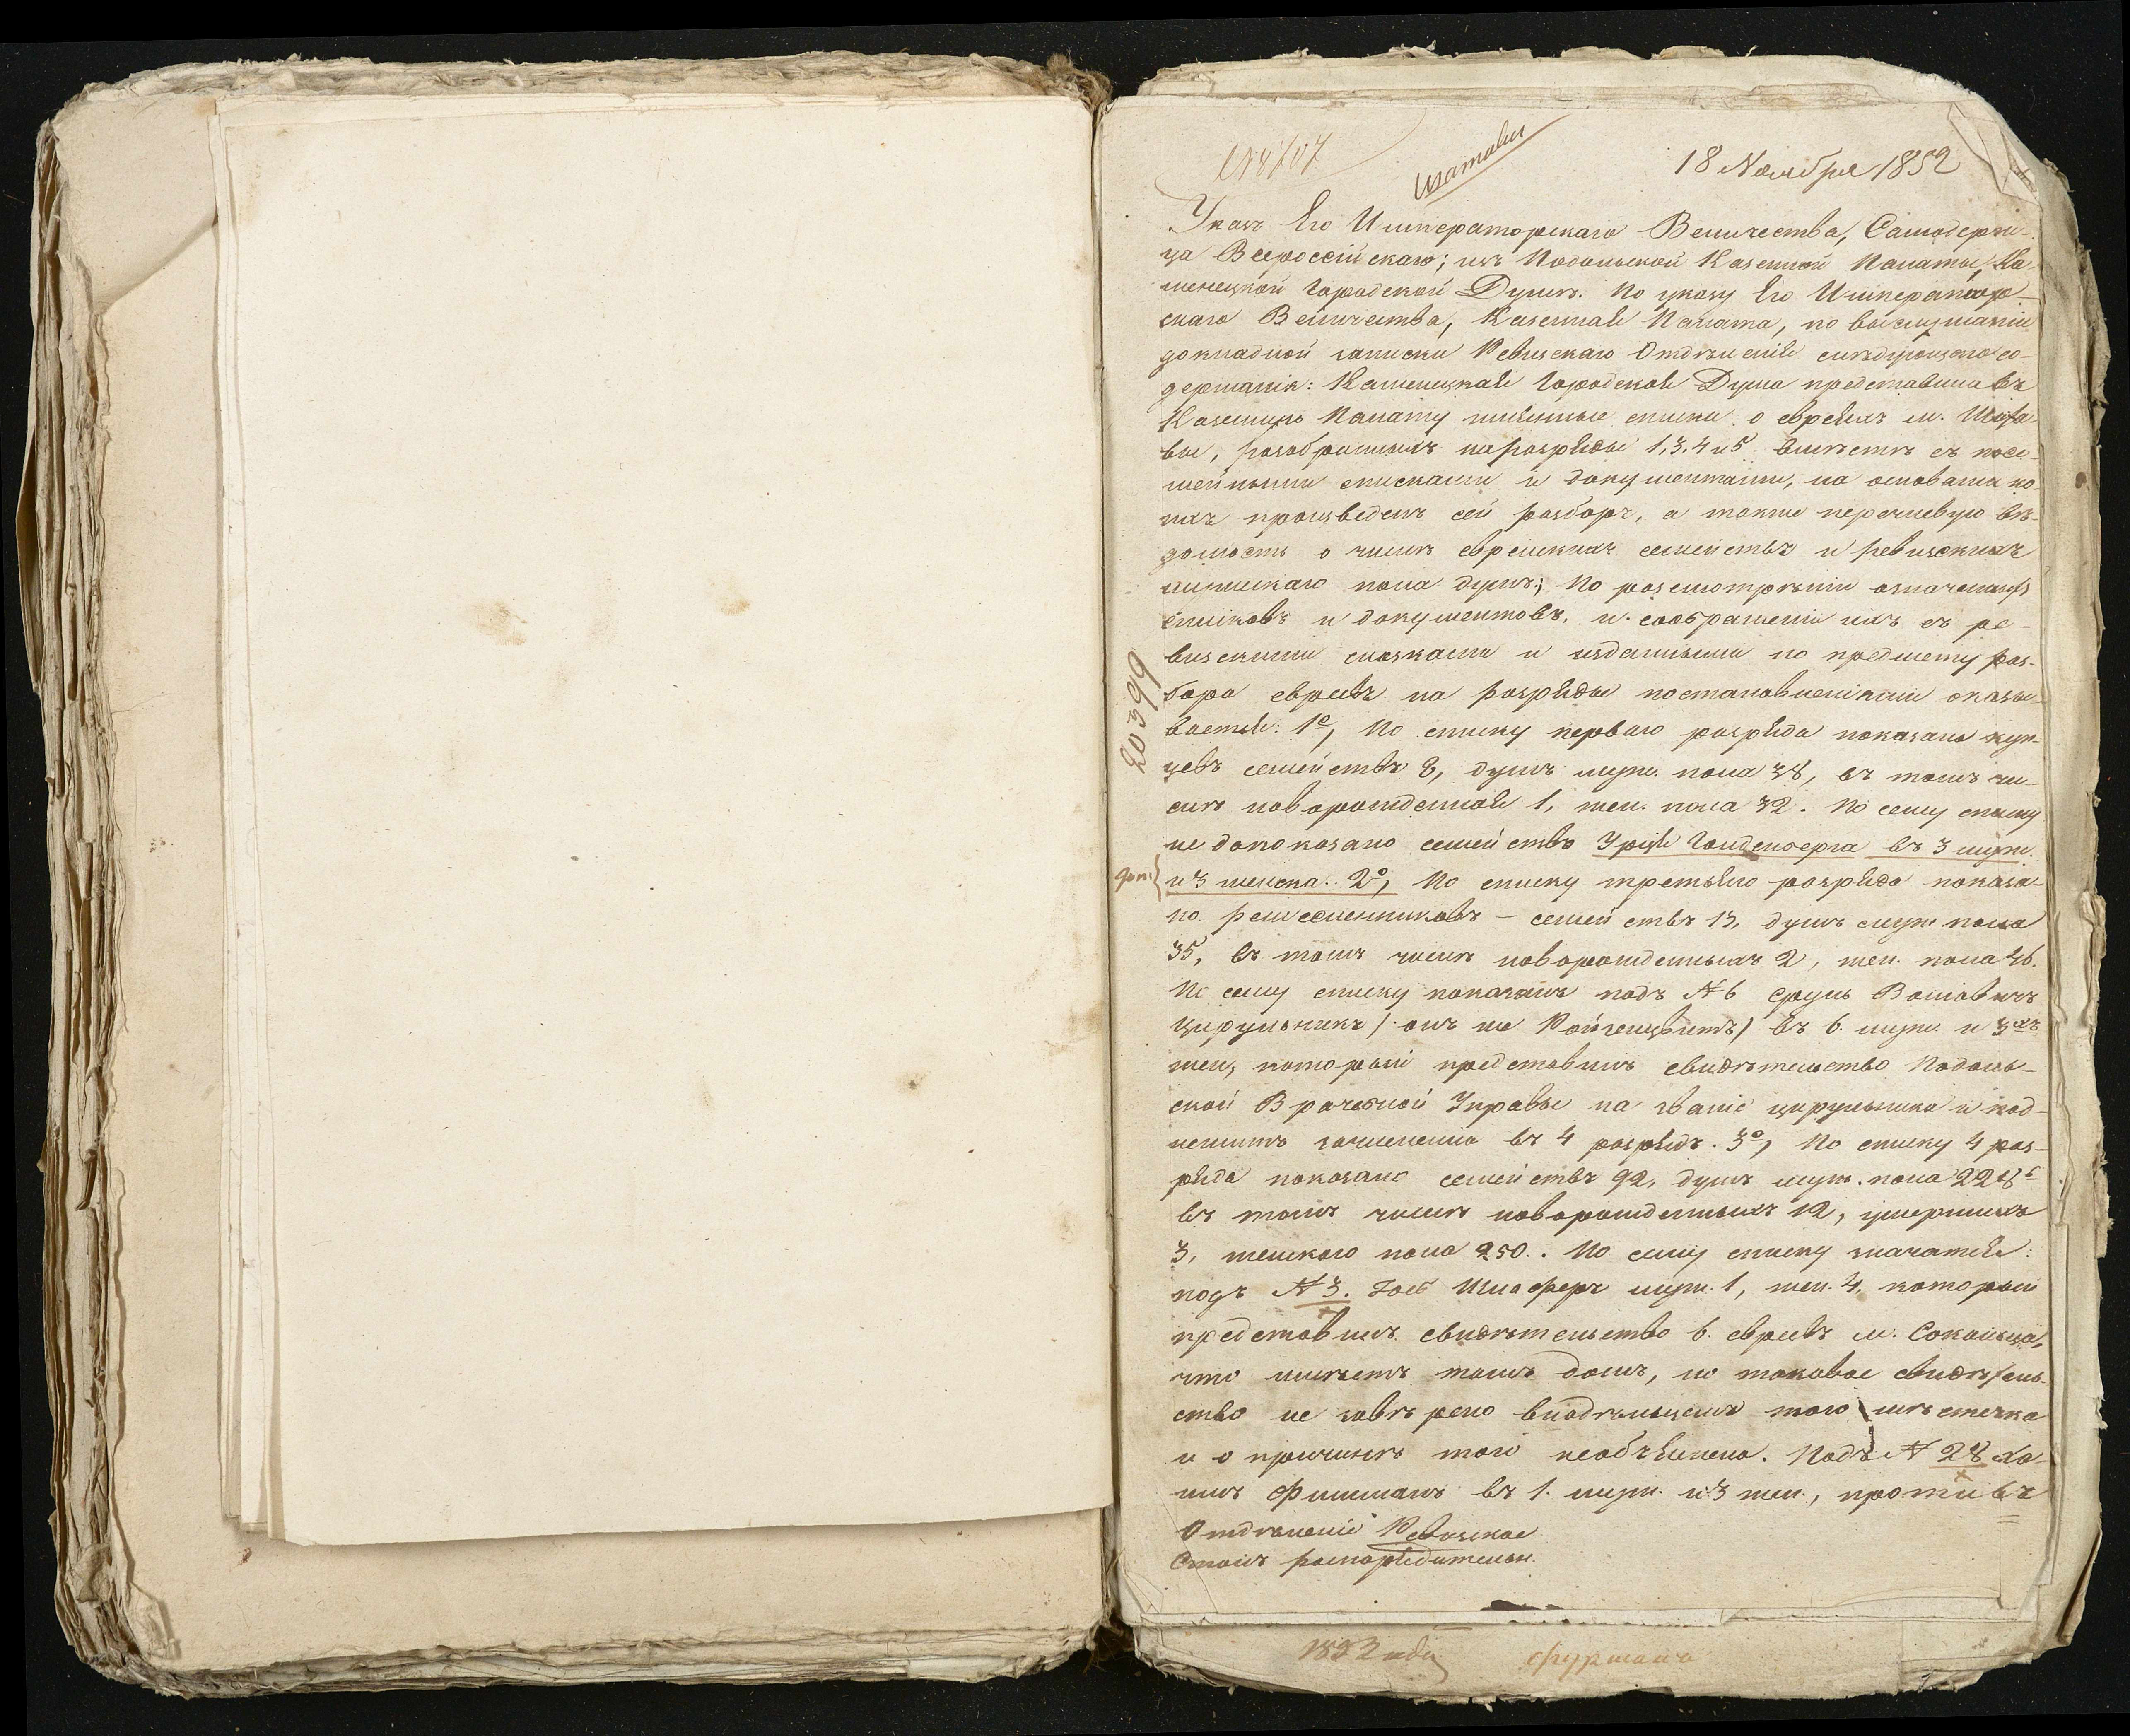 № 8707
Шатава
18 Ноября 1852
Указъ Его Императорскаго Величества, Самодерж-
ца Всероссійскаго; изъ Подольской Казенной Палаты, Ка-
менецкой Городской Думѣ. По указу Его Император-
скаго Величества, Казенная Палата, по выслушаніи
докладной записки Ревизскаго Отдѣленія слѣдующаго со-
держанія: Каменецкая Городская Дума представила въ
Казенную Палату имянные списки о евреяхъ м. Шата-
вы, разобранныхъ на разряды 1, 3, 4 и 5 вмѣстѣ съ посе-
мейными списками и документами, на основаніи ко-
ихъ произведенъ сей разборъ, а также перечневую вѣ-
домость о числѣ еврейскихъ семействъ и ревизскихъ
мужескаго пола душъ; По разсмотрѣніи означенныхъ
списковъ и документовъ, и соображеніи ихъ съ ре-
визскими сказками и изданными по предмету раз-
бора евреевъ на разряды постановленіями оказы-
вается: 1º, По списку перваго разряда показано куп-
цевъ семействъ 8, душъ муж. пола 38, въ томъ чи-
слѣ новорожденный 1, жен. пола 32. По сему списку
не допоказано семейство Гольденберга въ 3 муж.
и 3 женска. 2º, По списку третьяго разряда показа-
но ремесленниковъ – семействъ 13, душъ муж. пола
35, въ томъ числѣ новорожденныхъ 2, жен. пола 46.
По сему списку показанъ подъ № 6 Сруль Волговичъ
Цирульникъ (онъ же) въ 6. муж. и 3хъ
жен., который представилъ свидѣтельство Подоль-
ской Врачебной Управы на званіе цирульника и под-
лежитъ зачисленію въ 4 разрядъ. 3º, По списку 4 раз-
ряда показано семействъ 92, душъ муж. пола 228
въ томъ числѣ новорожденныхъ 12, умершихъ
3, женскаго пола 250. По сему списку значатся:
подъ № 3. Шлаферъ муж. 1, жен. 4, который
представилъ свидѣтельство 6. евреевъ м. Сокольца,
что имѣетъ тамъ домъ, но таковое свидѣтель-
ство не завѣрено владѣльцемъ того мѣстечка
и о причинѣ той необъяснено. Подъ № 28 Ха-
имъ Фишманъ въ 1. муж. и 3 жен., противъ
Отдѣленіе Ревизское
Столъ распорядительн.
20399
1852 года
Фурмана